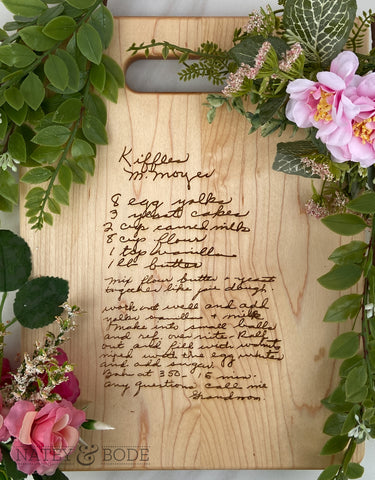 Kiffles
M. Moyer
8 egg yolks
3 yeast cakes
2 cup canned milk
8 cup flour
1 tsp vanilla
1 lb. butter
Mix flour butter & yeast
together like pie dough.
work out well and add
yolks vanilla & milk
Make into small balls
and ref. over nite. Roll
out and fill with walnuts
mixed with the egg whites
and add sugar.
Bake at 350. 15 min.
any questions call me
Grandmom.
NATEY & BODE